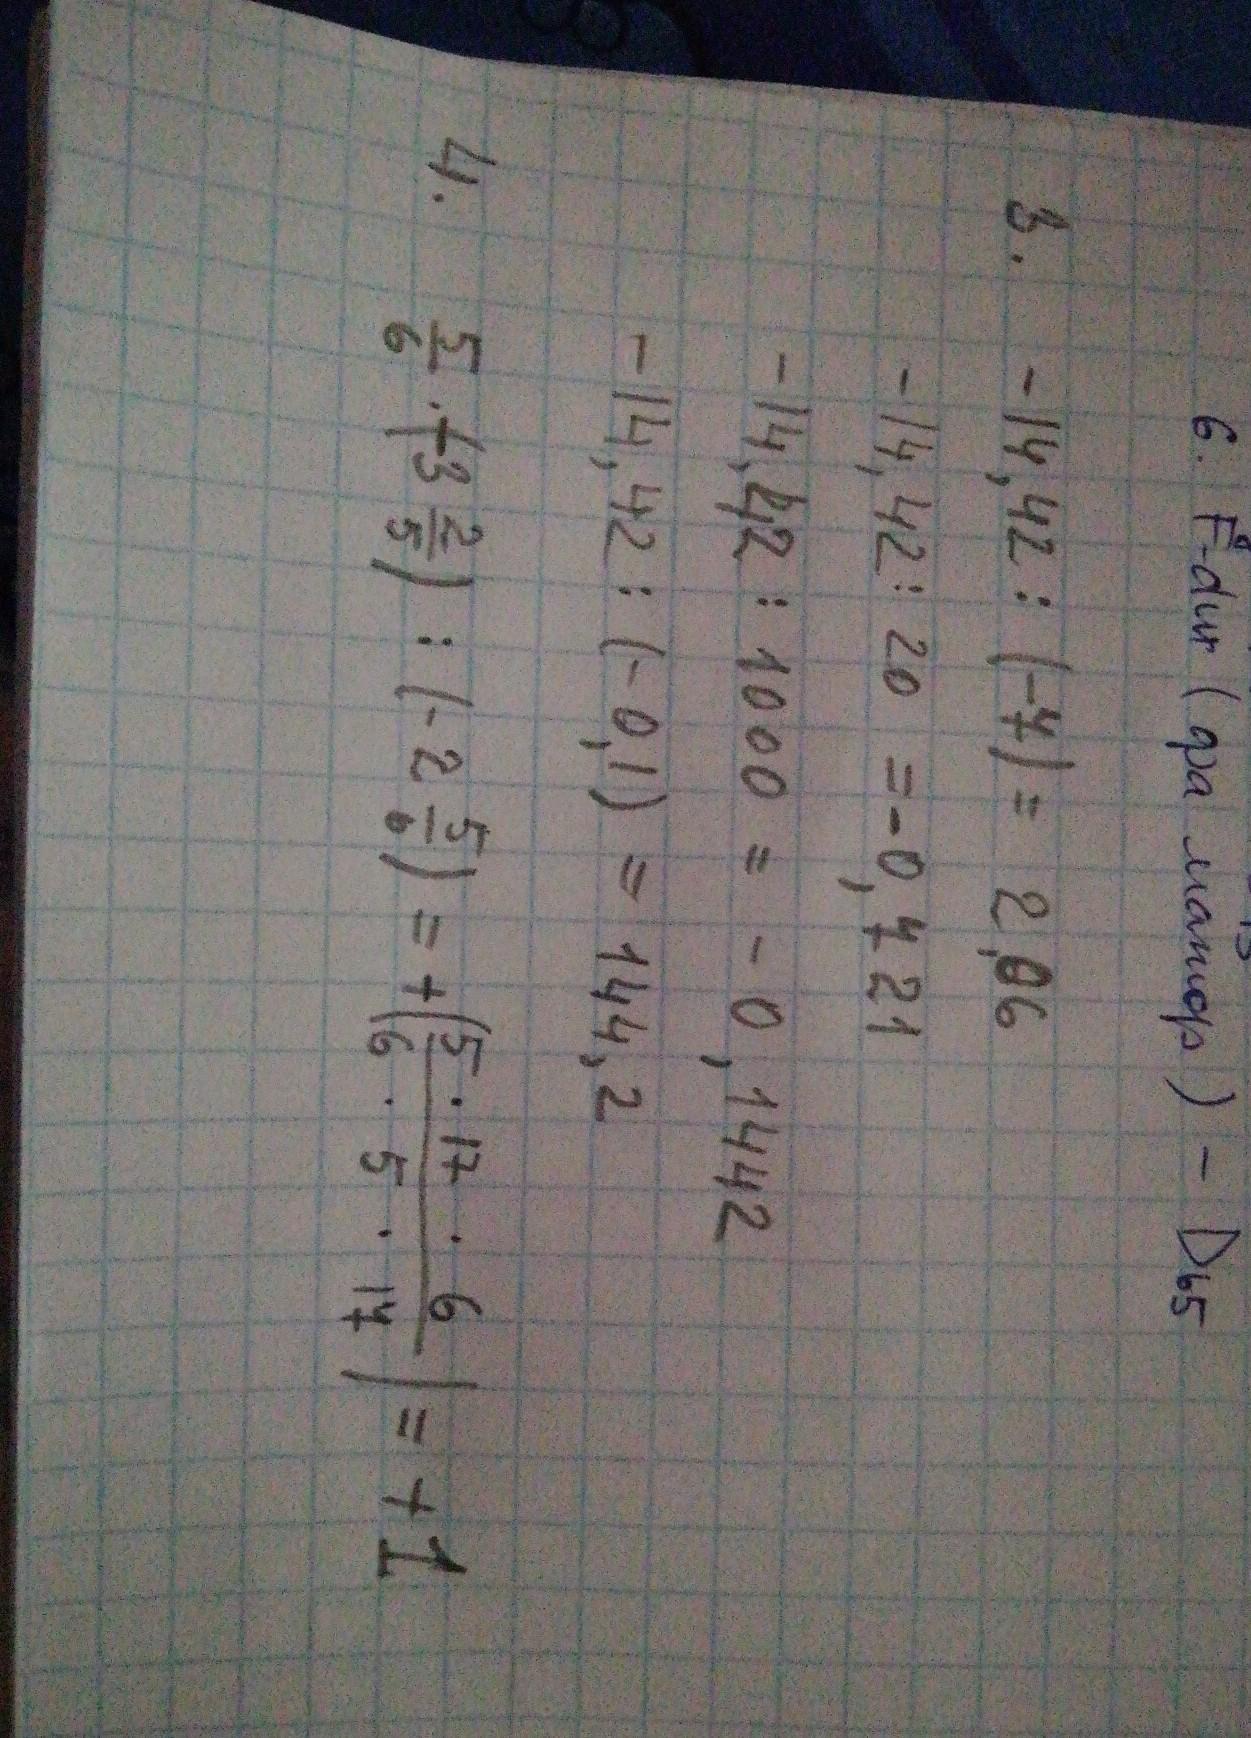 6. F-dur (фа мажор) – D65
3. -14,42 : (-7) = 2,06
-14,42 : 20 = -0,721
-14,42 : 1000 = -0,1442
-14,42 : (-0,1) = 144,2
4. 5/6 · (-3 2/5) : (-2 5/6) = +(5 · 17 · 6 / 6 · 5 · 17) = +1